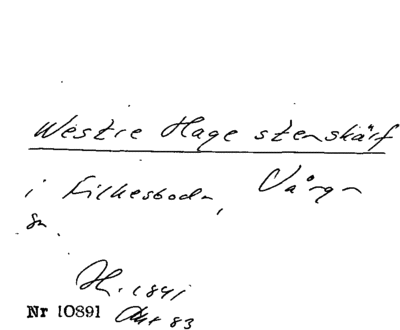 Westre Hage stenskärf
i Fiskesboda, Vånga
sn.
H. 1841
Nr 10891 Akt 83